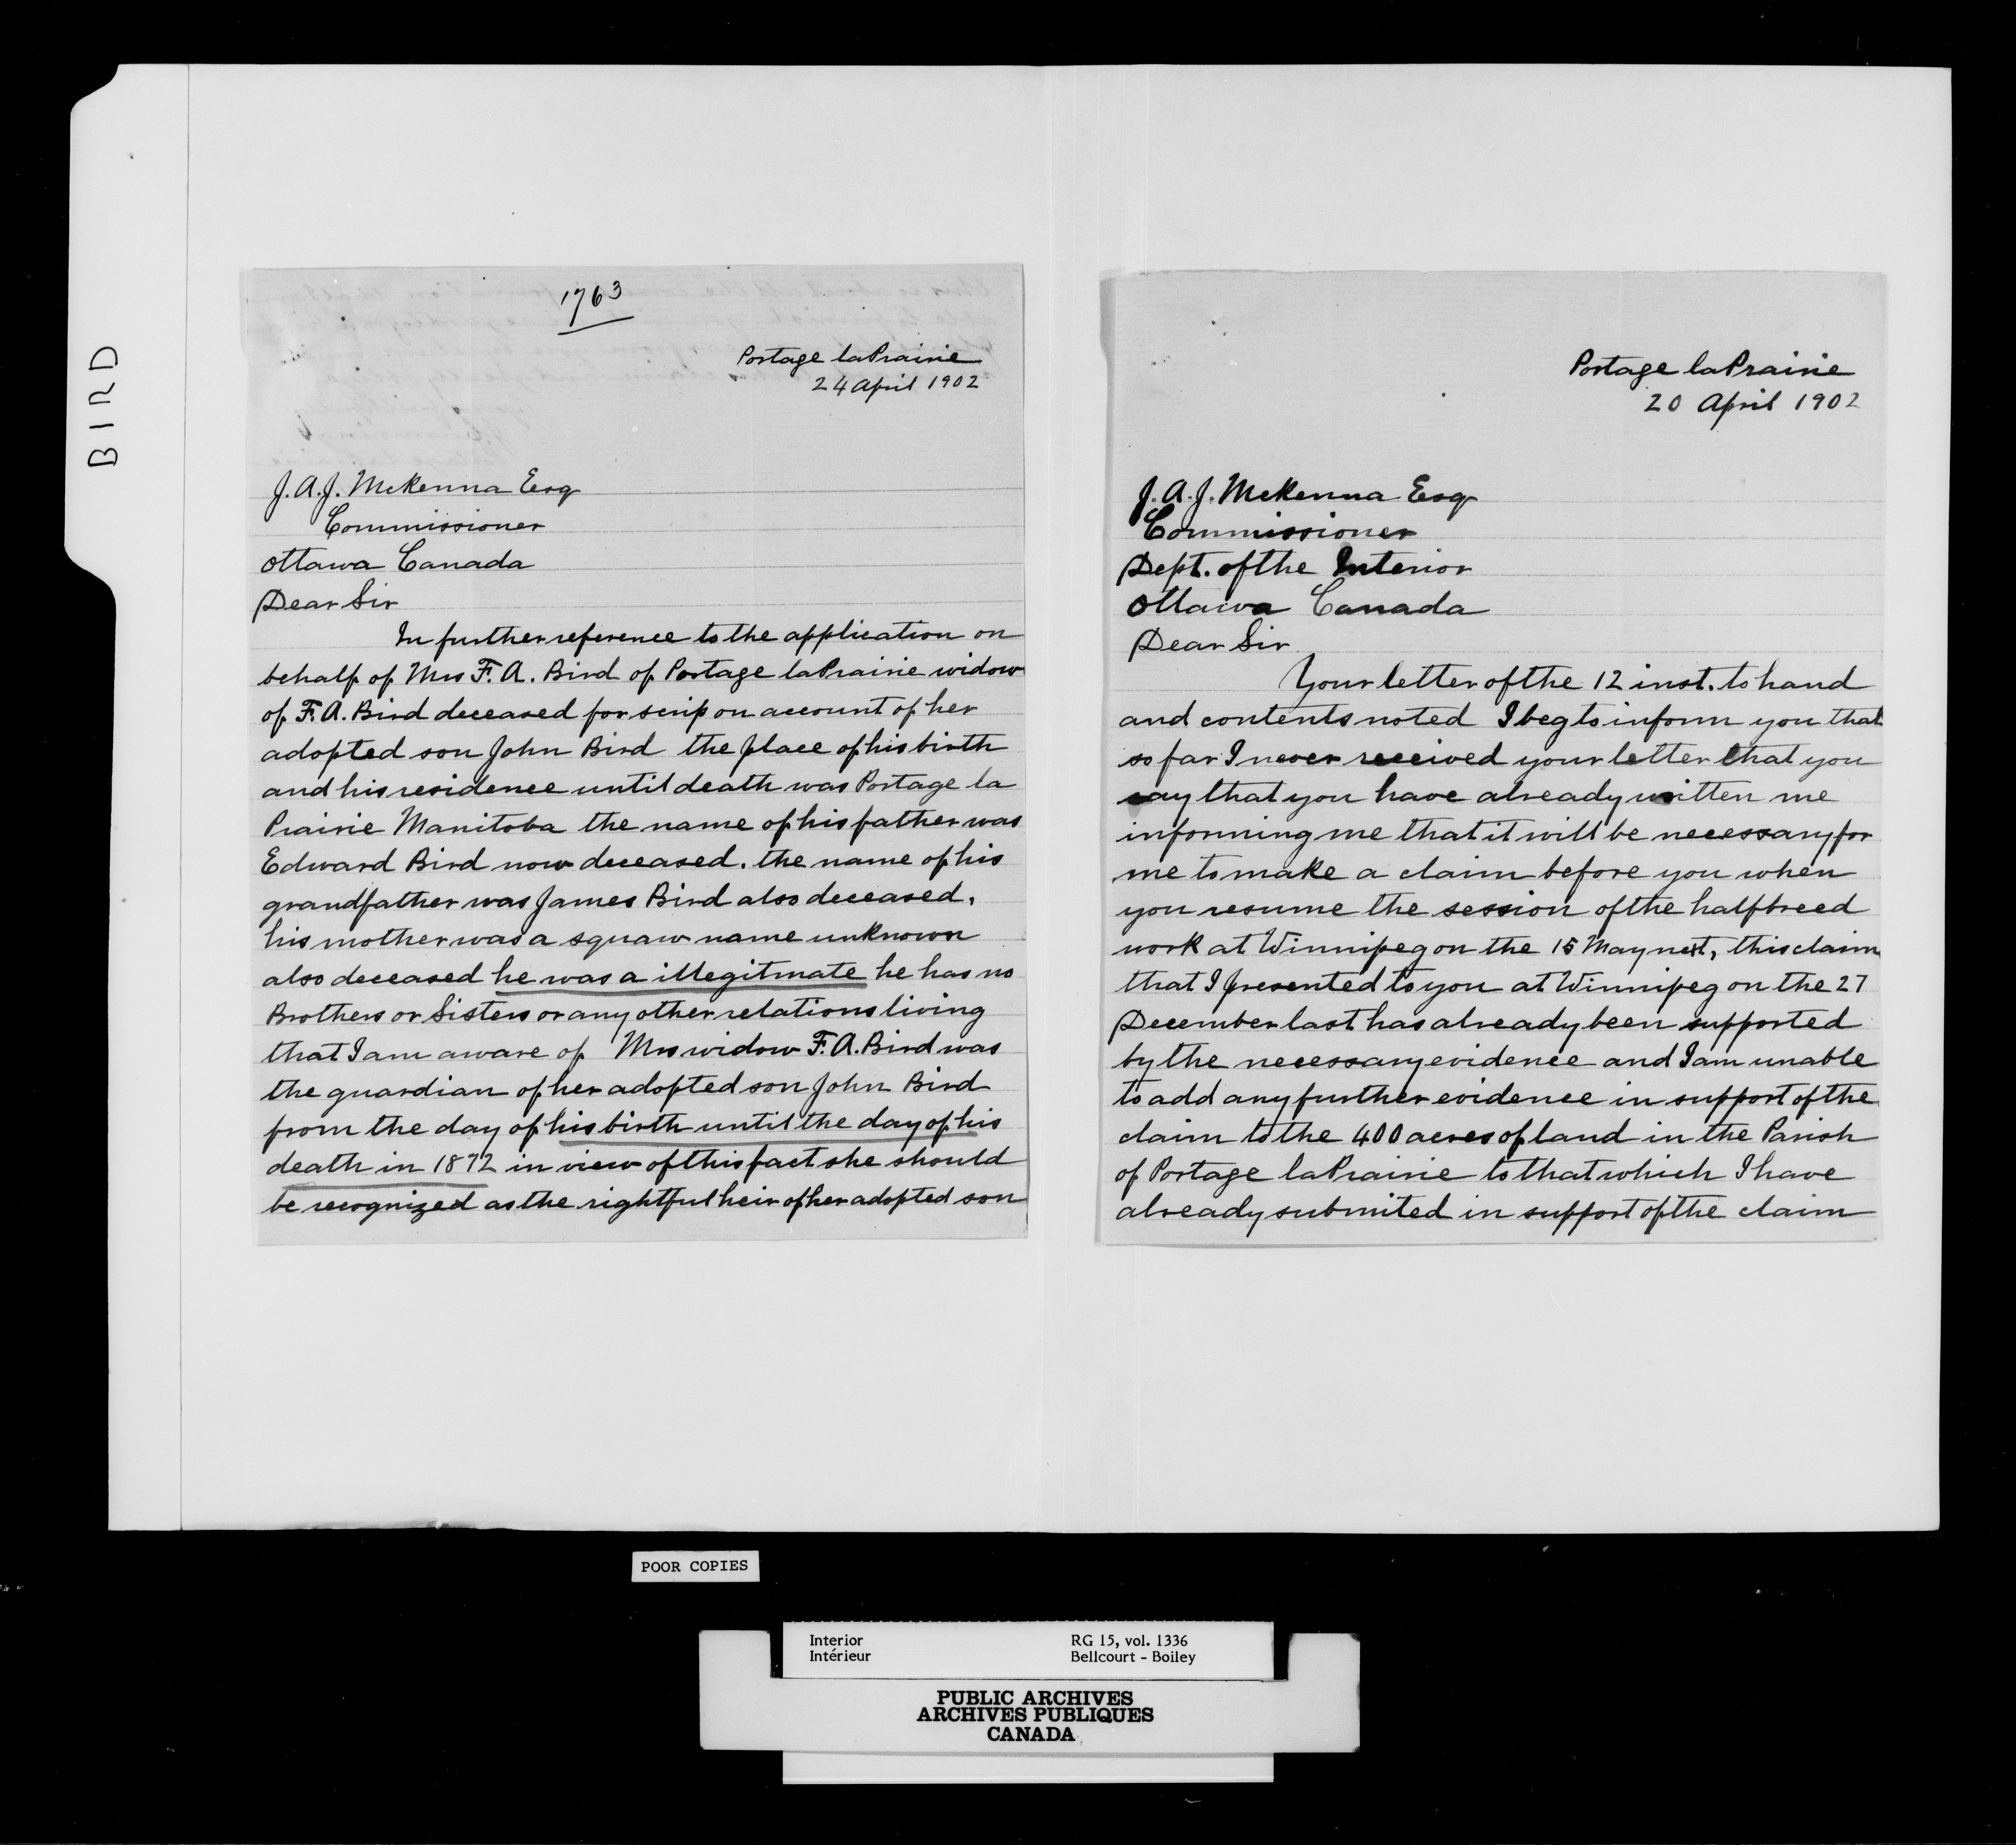 BIRD
1763
Portage laPrairie
24 April 1902
J. A. J. McKenna Esq
Commissioner
Ottawa Canada
Dear Sir
In further reference to the application on
behalf of Mrs F. A. Bird of Portage laPrairie widow
of F. A. Bird deceased for scrip on account of her
adopted son John Bird the place of his birth
and his residence until death was Portage la
Prairie Manitoba the name of his father was
Edward Bird now deceased. the name of his
grandfather was James Bird also deceased.
his mother was a squaw name unknown
also deceased he was a illegitmate he has no
Brothers or Sisters or any other relations living
that I am aware of Mrs widow F. A. Bird was
the guardian of her adopted son John Bird
from the day of his birth until the day of his
death in 1872 in view of this fact she should
be recognized as the rightful heir of her adopted son
Portage laPrairie
20 April 1902
J. A. J. McKenna Esq
Commissioner
Dept. of the Interior
Ottawa Canada
Dear Sir
Your letter of the 12 inst. to hand
and contents noted I beg to inform you that
so far I never received your letter that you
say that you have already written me
informing me that it will be necessary for
me to make a claim before you when
you resume the session of the halfbreed
work at Winnipeg on the 15 May next, this claim
that I presented to you at Winnipeg on the 27
December last has already been supported
by the necessary evidence and I am unable
to add any further evidence in support of the
claim to the 400 acres of land in the Parish
of Portage laPrairie to that which I have
already submited in support of the claim
POOR COPIES
Interior RG 15, vol. 1336
Intérieur Bellcourt - Boiley
PUBLIC ARCHIVES
ARCHIVES PUBLIQUES
CANADA